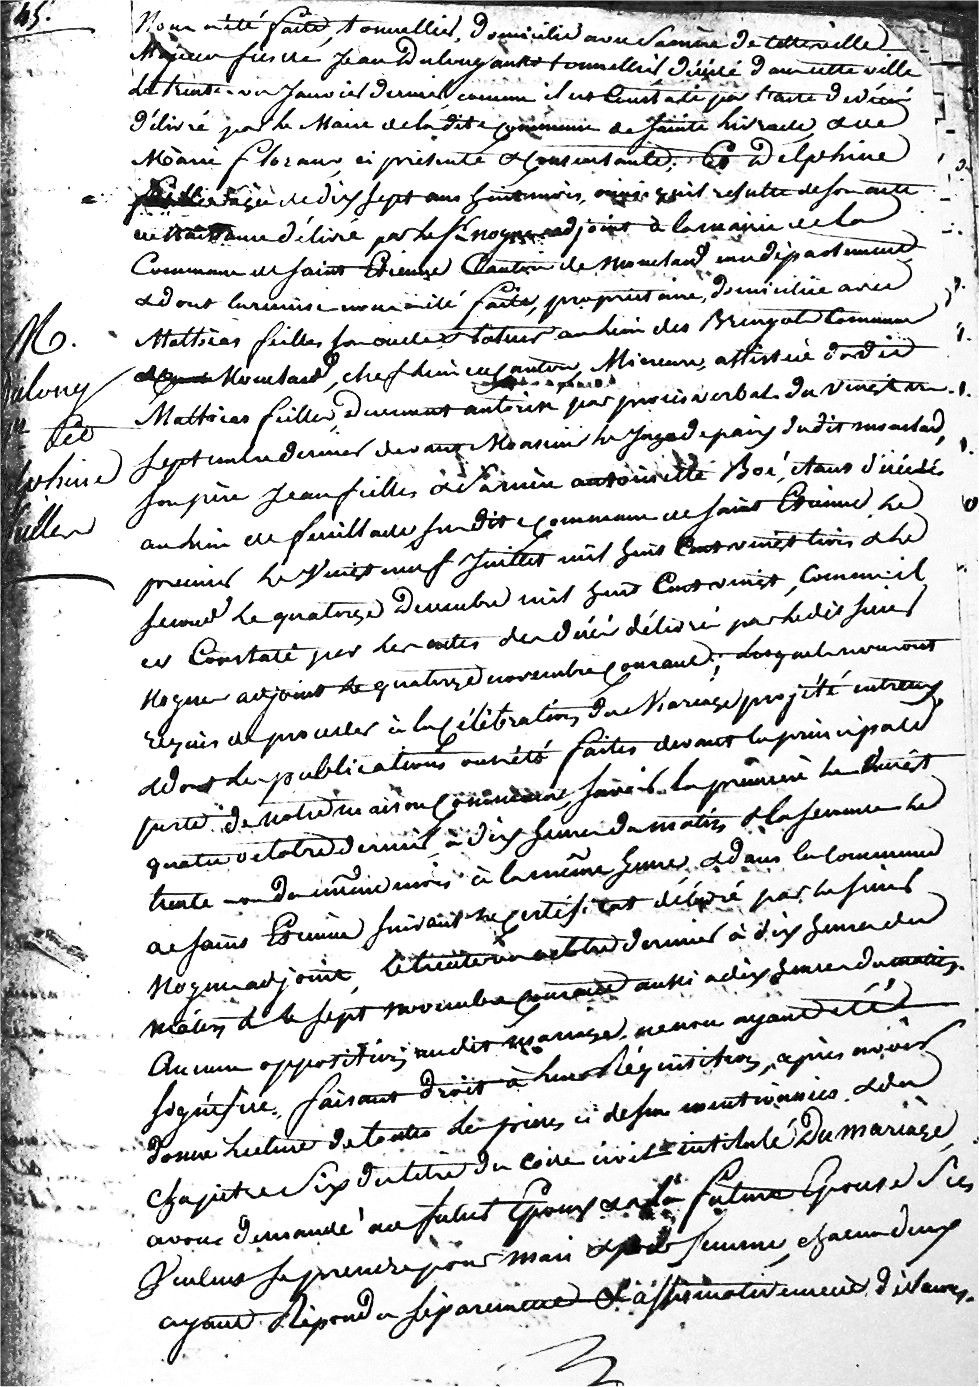 45.
Nous a été faite, tonnellier, domicilié avec sa mère de cette ville
Majeur fils de Jean Dulong aussi tonnellier décédé dans cette ville
le trente un Janvier dernier comme il est Constaté par l'acte de décès
délivré par le Maire de la dite commune de Sainte Livrade, & de
Marie Florans, ci présente & Consentante; Et Delphine
Feilles âgée de dix sept ans huit mois, ainsi qu'il résulte de son acte
de naissance délivré par le Sr. Nogue adjoint à la mairie de la
Commune de Saint Etienne Canton de Monclard, même département
& dont la remise nous a été faite, propriétaire, domiciliée avec
Mathias feilles son oncle & tuteur au lieu des Bringols Commune
de Monclard, chef lieu de canton, Mineure, assistée dudit
Mathias feilles, duement autorisé par procès verbal du vingt un
Septembre dernier devant Monsieur le Juge de paix dudit monclard,
Son père Jean feilles & sa mère antoinette Boé, étant décédés
au lieu de feuillade susdite Commune de Saint Etienne, le
premier le Vingt neuf Juillet mil huit Cent vingt trois & le
second le quatorze Décembre mil huit Cent vingt, comme il
est Constaté par les actes de décès délivrés par ledit Sieur
Nogue adjoint le quatorze novembre courant; lesquels nous ont
requis de procéder à la Célébration du Mariage projété entreux
& dont les publications ont été faites devant la principale
porte de notre maison Commune, savoir la première le vingt
quatre octobre dernier, à dix heures du matin & la seconde le
trente un du même mois à la même heure, & dans la Commune
de Saint Etienne suivant le Certificat délivré par le Sieur
Nogue adjoint, le trente un octobre dernier à dix heures du
matin & le sept novembre courant aussi à dix heures du matin.
Aucune opposition audit mariage ne nous ayant été
signifiée, faisant droit à leur Réquisition, après avoir
donné lecture de toutes les pièces ci dessus mentionnées & du
chapitre Six du titre du code civil intitulé Du mariage,
avons demandé au futur Epoux & à la future Epouse s'ils
Veulent se prendre pour mari & pour femme, chacun d'eux
ayant Répondu séparément & affirmativement, déclarons
M.
Dulong
et
Delphine
Feilles